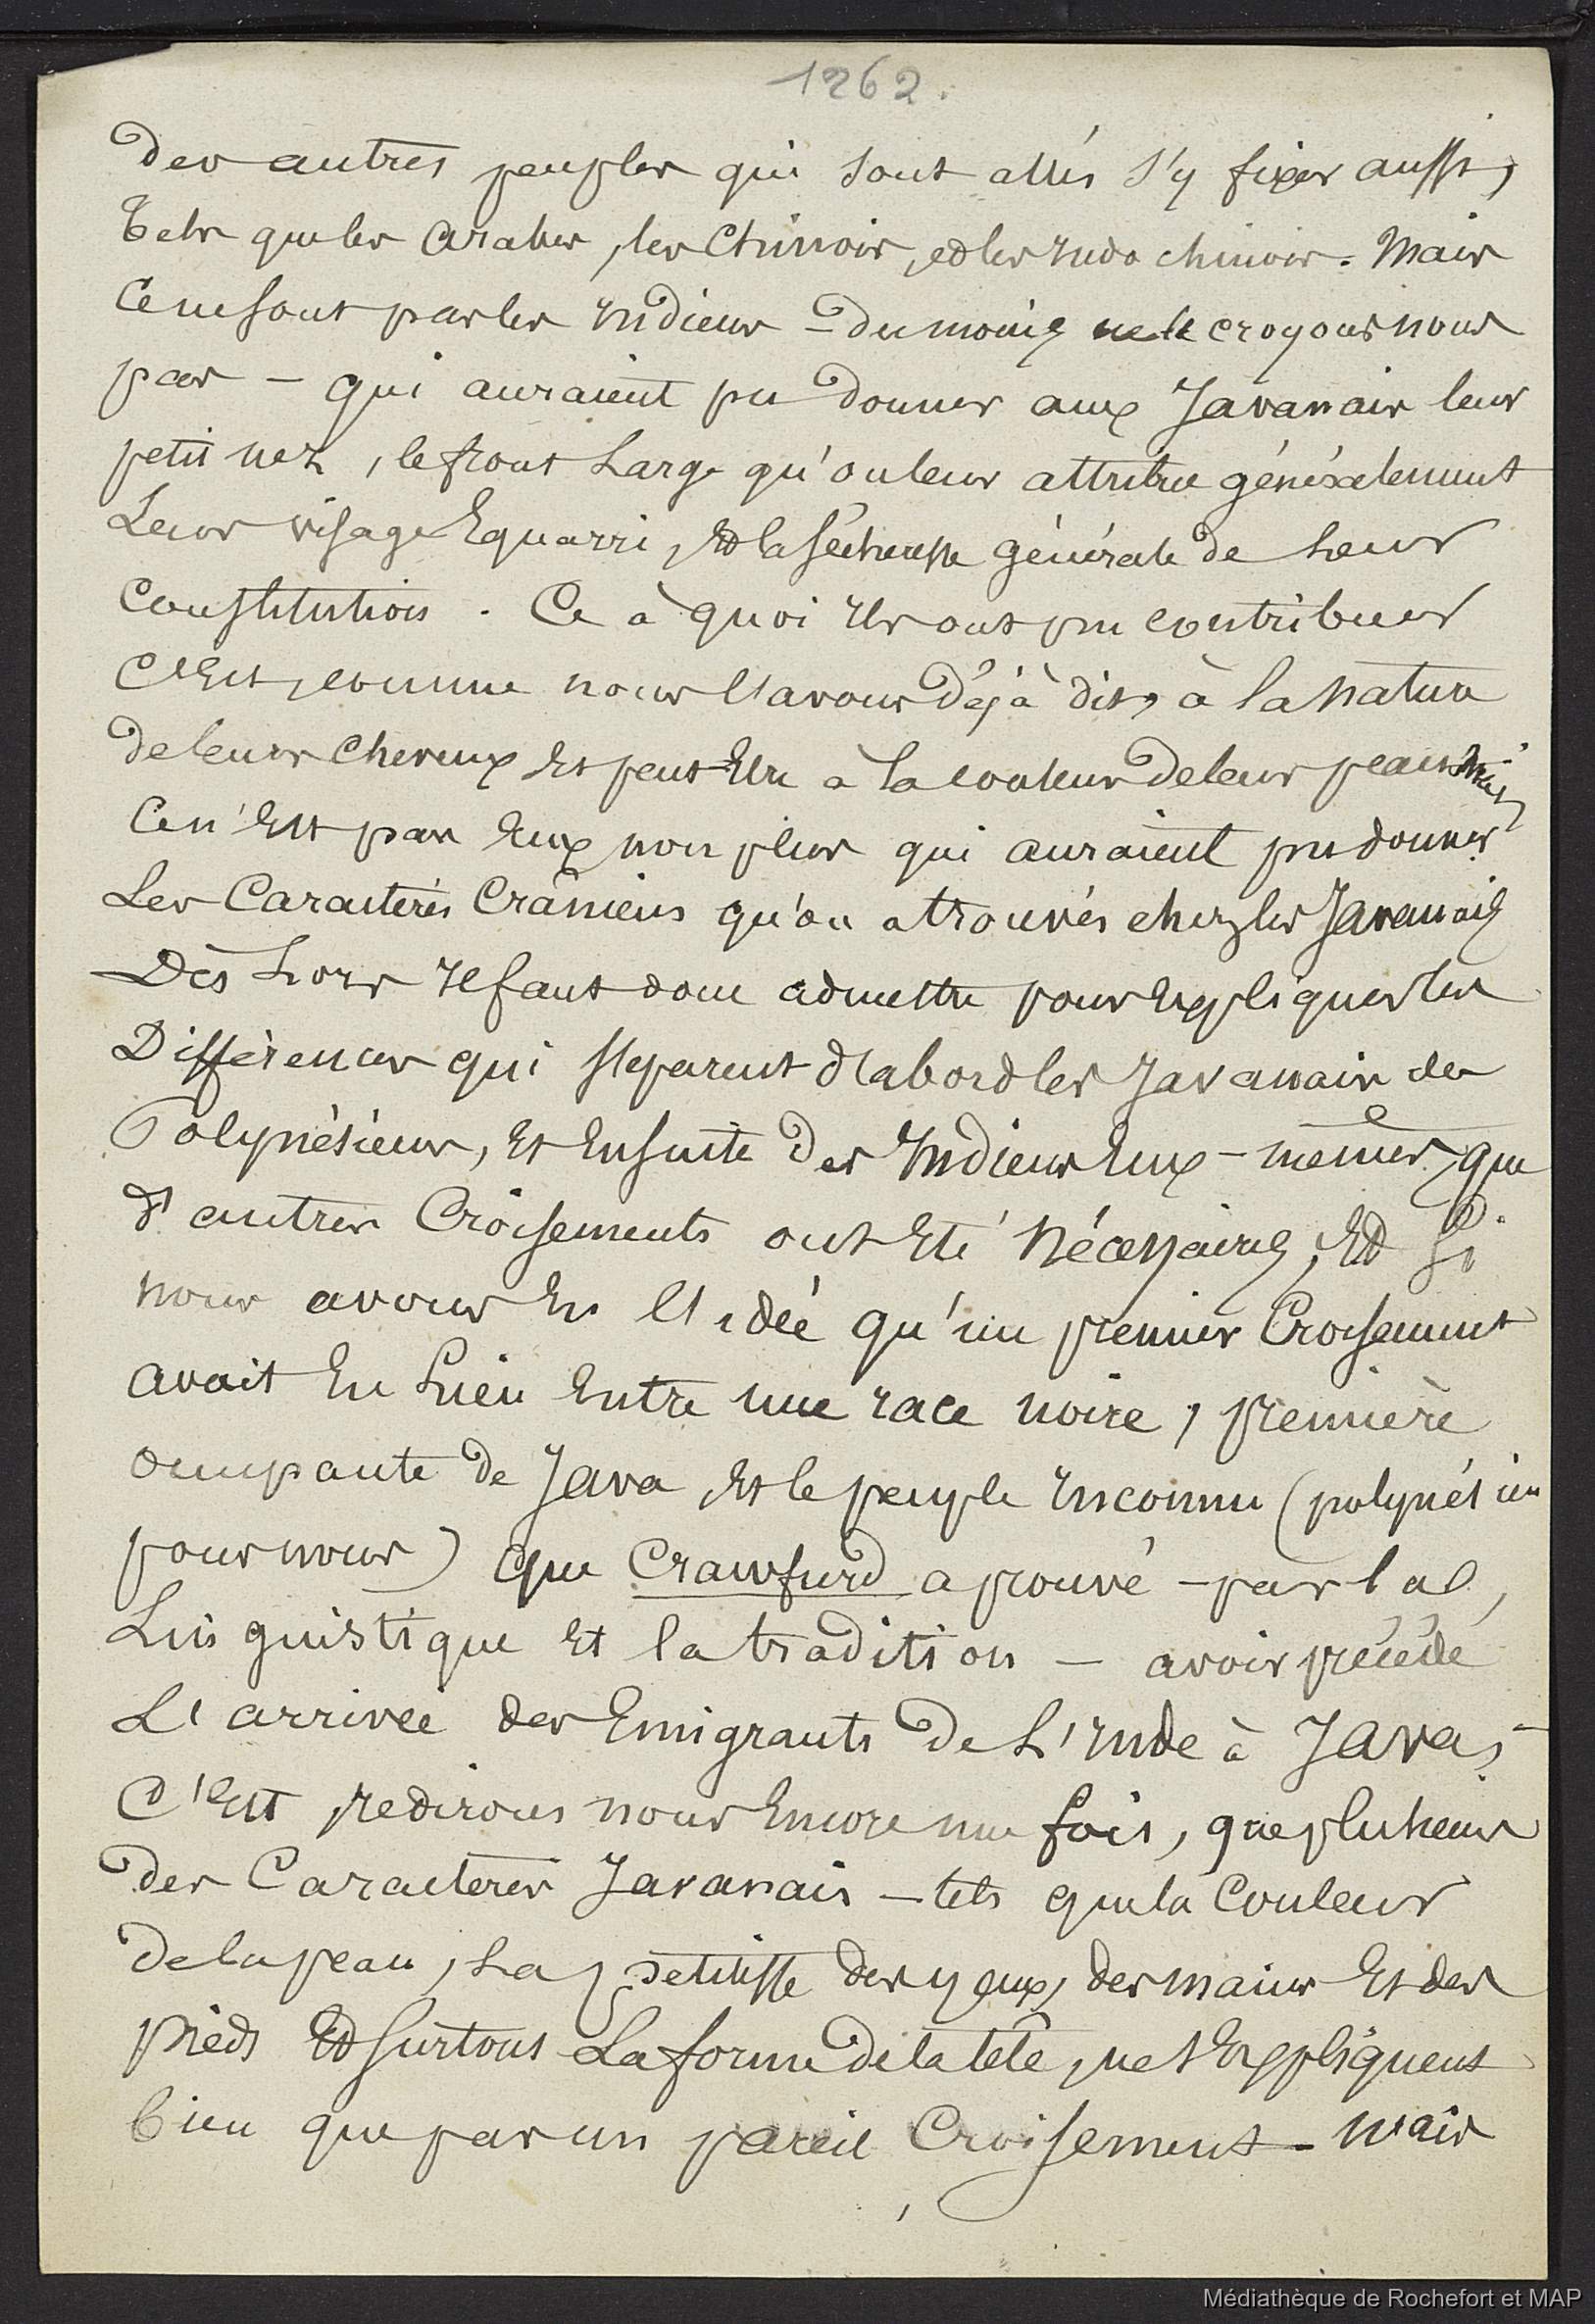 1262.
des autres peuples qui sont allés s'y fixer aussi,
Tels que les arabes, les Chinois, et les indo chinois. Mais
Ce ne sont pas les indiens - du moins ne le croyons nous
pas - qui auraient pu donner aux Javanais leur
petit nez, le front large qu'on leur attribue généralement
Leur visage Equarri, Et la sécheresse générale de leur
Constitution. Ce à quoi ils ont pu contribuer
C'Est, comme nous l'avons déjà dit, à la nature
de leurs cheveux Et peut-Etre à la couleur de leur peau mais
Ce n'Est pas Eux non plus qui auraient pu donner
Les Caractères Crâniens qu'on a trouvés chez les Javanais
Dès Lors il faut donc admettre pour Expliquer les
Différences qui séparent d'abord les Javanais des
Polynésiens, Et Ensuite des indiens Eux-mêmes, que
d'autres Croisements ont Eté nécessaires, Et si
nous avons Eu l'idée qu'un premier Croisement
avait Eu Lieu Entre une race noire, première
occupante de Java, Et le peuple inconnu (polynésien
pour nous) que Crawfurd a prouvé - par la
Linguistique Et la tradition - avoir précédé
L'arrivée des Emigrants de L'inde à Java, -
C'Est, redirons nous Encore une fois, que plusieurs
des Caractères Javanais - tels que la Couleur
de la peau, La petitesse des yeux, des mains Et des
pieds Et surtout La forme de la tête, ne s'Expliquent
bien que par un pareil Croisement - mais
Médiathèque de Rochefort et MAP